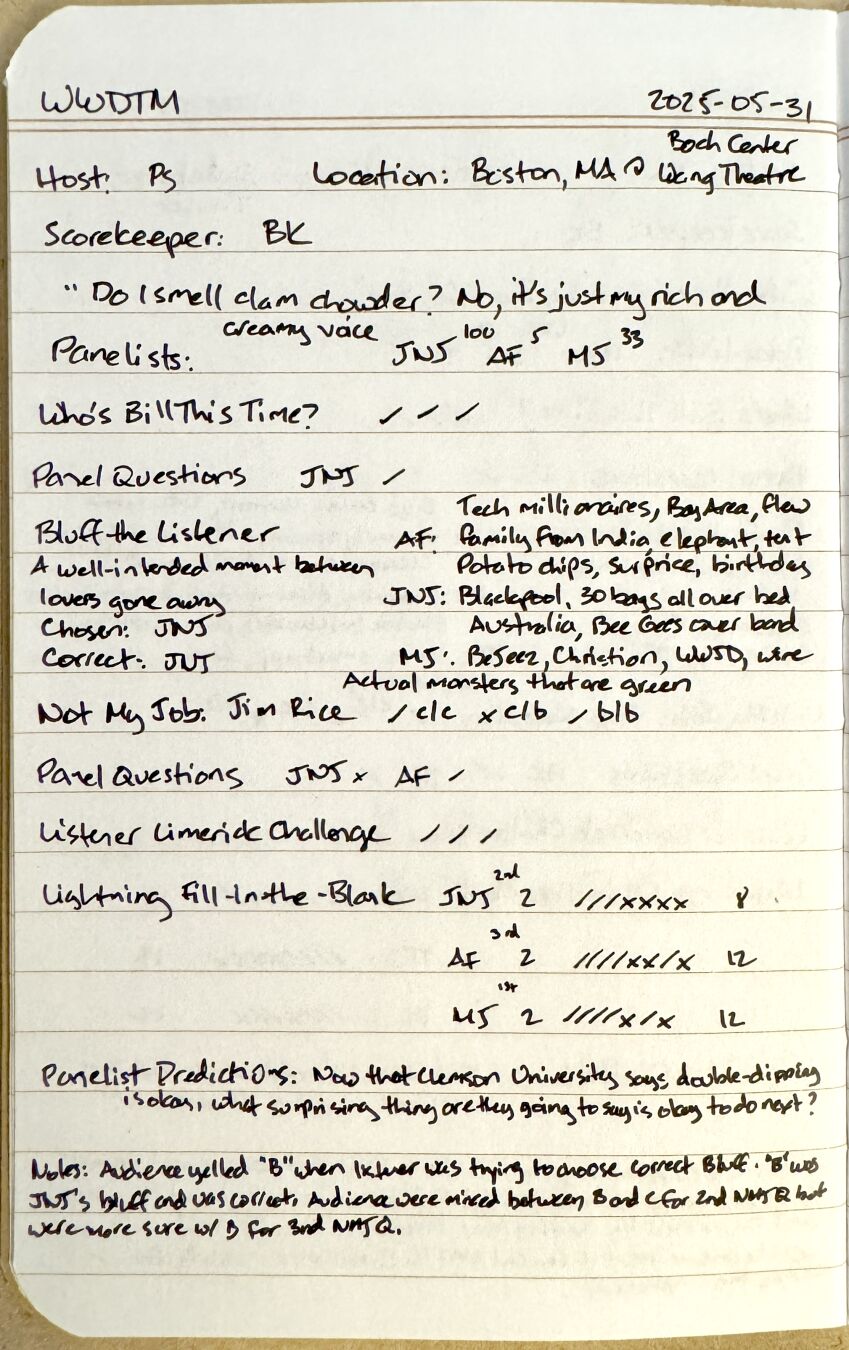 WWDTM 2025-05-31
Bach Center
Host: PS Location: Boston, MA @ Wang Theatre
Scorekeeper: BK
"Do I smell clam chowder? No, it's just my rich and
creamy voice
Panelists: JNJ 100 AF 5 MJ 33
Who's Bill This Time? / / /
Panel Questions JNJ /
Tech millionaires, Bay Area, flew
Bluff the Listener AF: family from India, elephant, tent
A well-intended moment between Potato chips, surprice, birthday
lovers gone awry JNJ: Blackpool, 30 bags all over bed
Chosen: JNJ Australia, Bee Gees cover band
Correct: JNJ MJ: BeJeez, Christian, WWJD, wire
Actual monsters that are green
Not My Job: Jim Rice / c/c x c/b / b/b
Panel Questions JNJ x AF /
Listener Limerick Challenge / / /
Lightning Fill-In-the-Blank JNJ 2nd 2 ///xxxx 8
AF 3rd 2 ////xx/x 12
MJ 1st 2 ////x/x 12
Panelist Predictions: Now that Clemson University says double-dipping
is okay, what surprising thing are they going to say is okay to do next?
Notes: Audience yelled "B" when listener was trying to choose correct Bluff. "B" was
JNJ's bluff and was correct. Audience were mixed between B and C for 2nd NMJ Q but
were more sure w/ B for 3rd NMJ Q.